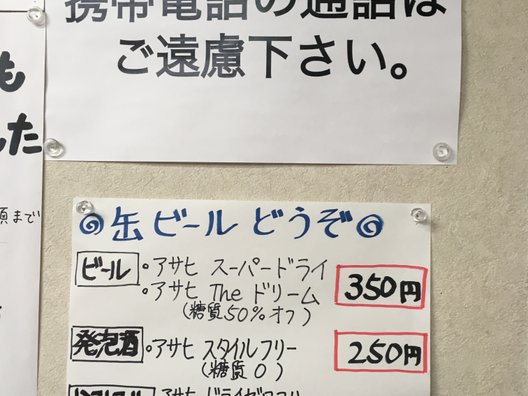 携帯電話の通話は
ご遠慮下さい。
も
した
頃まで
缶ビールどうぞ
ビール ・アサヒ スーパードライ
・アサヒ The ドリーム 350円
(糖質50%オフ)
発泡酒 ・アサヒ スタイルフリー 250円
(糖質0)
アサヒ ドライゼロ